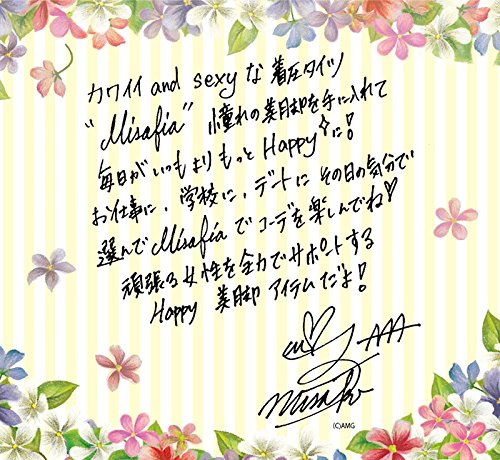 カワイイ and sexy な 着圧タイツ
"Misafia" 憧れの美脚を手に入れて
毎日がいつもよりもっと Happy に!
お仕事に、学校に、デートに その日の気分で
選んで Misafia でコーデを楽しんでね♡
頑張る女性を全力でサポートする
Happy 美脚 アイテムだよ!
AAA
misako
(C)AMG